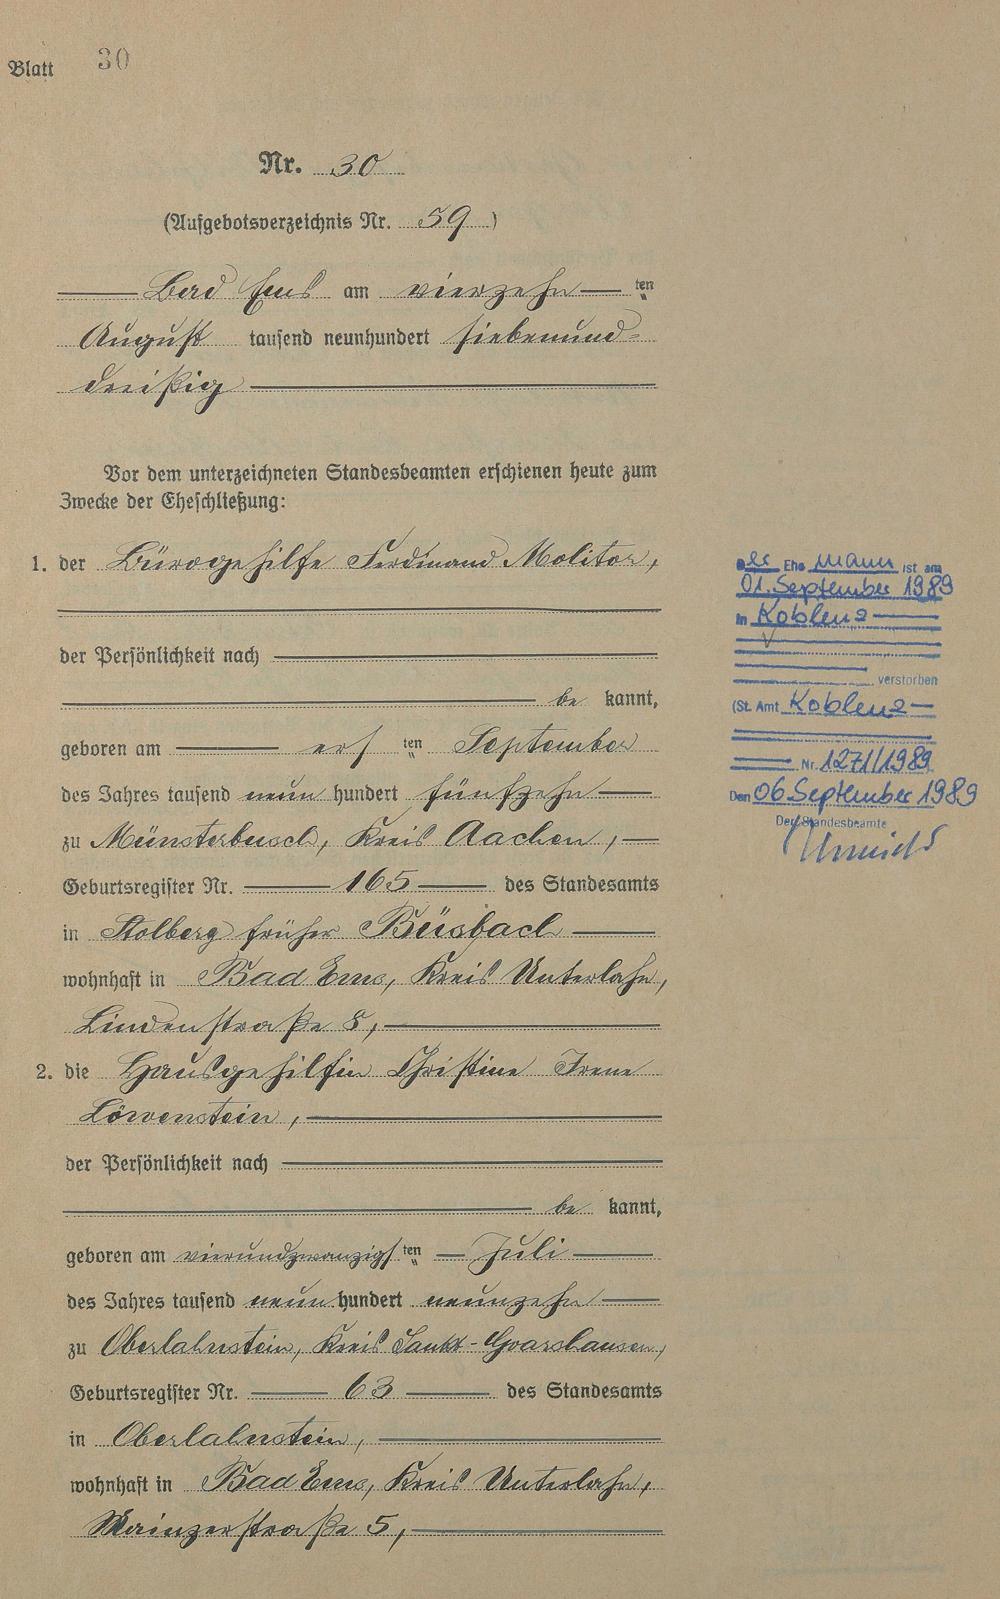 Blatt 30
Nr. 30
(Aufgebotsverzeichnis Nr. 59)
Bad Ems am vierzehn ten
August tausend neunhundert siebenund-
dreißig
Vor dem unterzeichneten Standesbeamten erschienen heute zum
Zwecke der Eheschließung:
1. der Bürogehilfe Ferdinand Molitor,
der Persönlichkeit nach
be kannt,
geboren am erst ten September
des Jahres tausend neun hundert fünfzehn
zu Münsterbusch, Kreis Aachen,
Geburtsregister Nr. 165 des Standesamts
in Stolberg früher Büsbach
wohnhaft in Bad Ems, Kreis Unterlahn,
Lindenstraße 8,
2. die Hausgehilfin Christine Irene
Löwenstein,
der Persönlichkeit nach
be kannt,
geboren am vierundzwanzigst ten Juli
des Jahres tausend neun hundert neunzehn
zu Oberlahnstein, Kreis Sankt-Goarshausen,
Geburtsregister Nr. 63 des Standesamts
in Oberlahnstein,
wohnhaft in Bad Ems, Kreis Unterlahn,
Mainzerstraße 5,
Der Ehe mann ist am
01. September 1989
in Koblenz
verstorben
(St. Amt Koblenz
Nr. 1271/1989
Den 06 September 1989
Der Standesbeamte